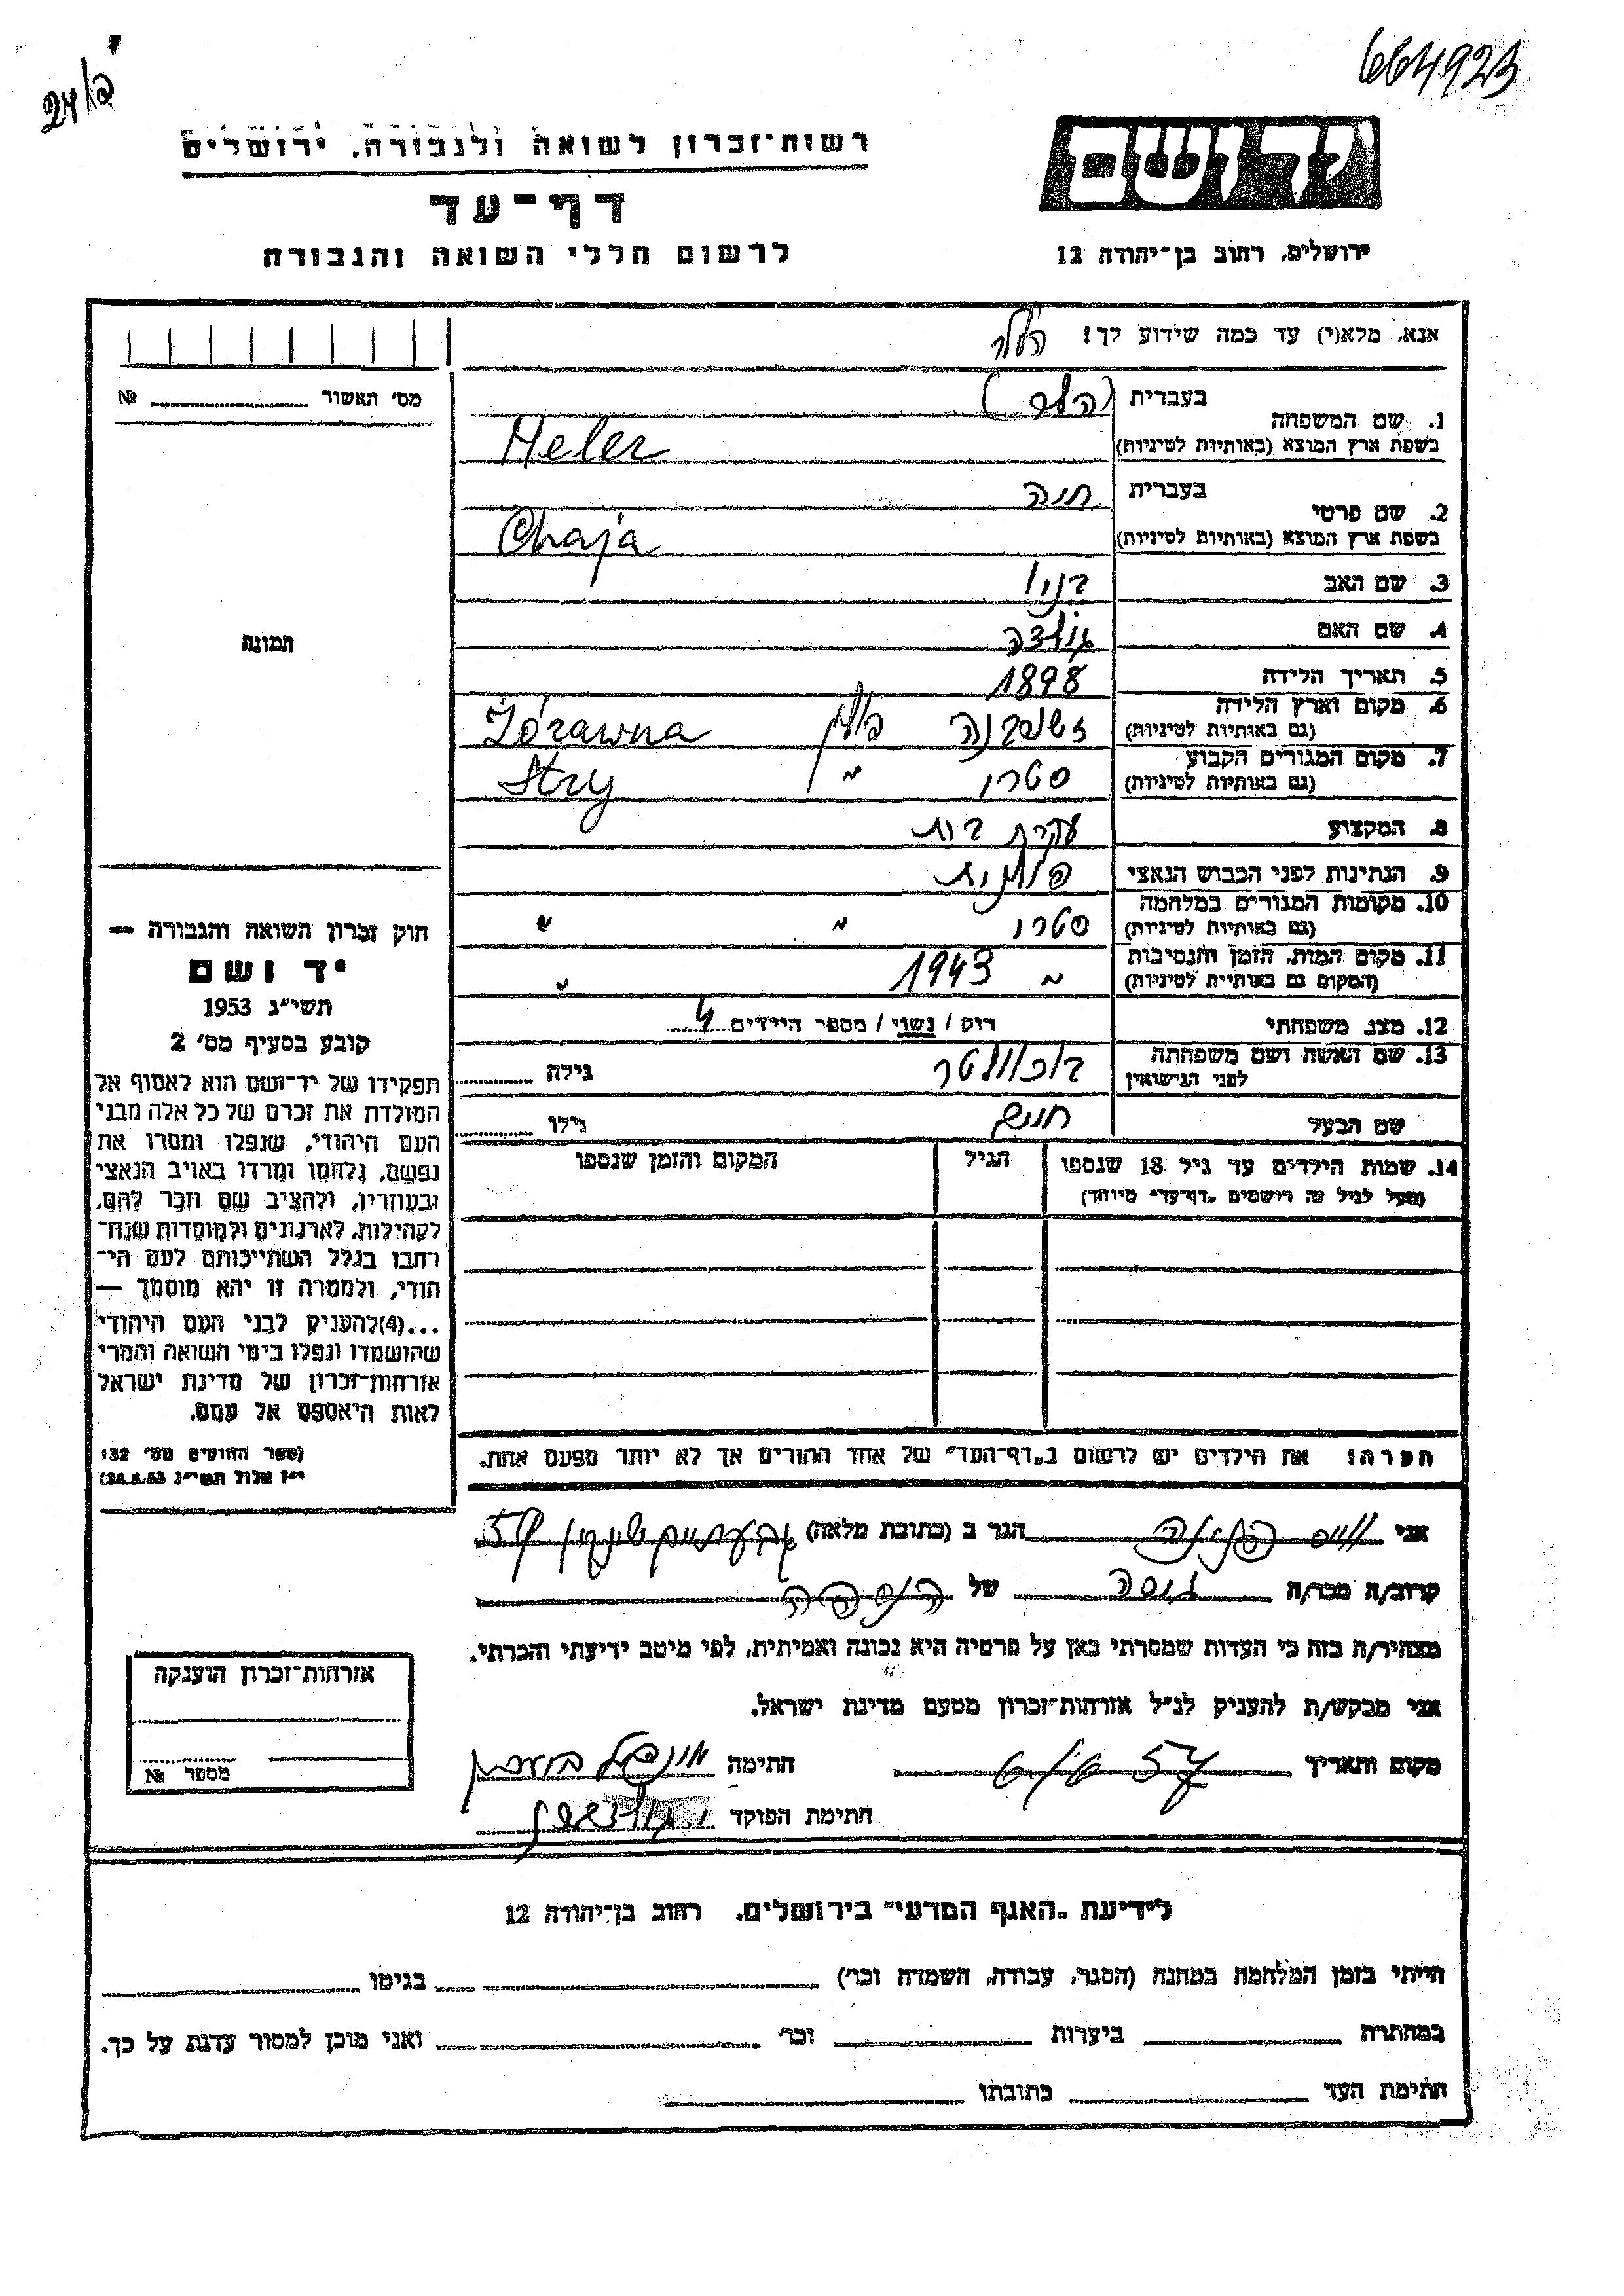 664923
24/פ
יד ושם
רשות־זכרון לשואה ולגבורה, ירושלים
דף־עד
לרשום חללי השואה והגבורה
ירושלים, רחוב בן־יהודה 12
אנא, מלא(י) עד כמה שידוע לך! הלר
מס׳ האשור № 
1. שם המשפחה
בעברית
בשפת ארץ המוצא (באותיות לטיניות) Heler
2. שם פרטי
בעברית חיה
בשפת ארץ המוצא (באותיות לטיניות) Chaja
3. שם האב
4. שם האם גולדה
5. תאריך הלידה 1898
6. מקום וארץ הלידה
(גם באותיות לטיניות) פולין Żórawna
7. מקום המגורים הקבוע
(גם באותיות לטיניות) סטרי " Stry
8. המקצוע עקרת בית
9. הנתינות לפני הכבוש הנאצי פולנית
10. מקומות המגורים במלחמה
(גם באותיות לטיניות) סטרי " "
11. מקום המות, הזמן והנסיבות
(המקום גם באותיות לטיניות) " 1943 "
12. מצב משפחתי רוק / נשוי / מספר הילדים 4
13. שם האשה ושם משפחתה
לפני הנישואין גילה
שם הבעל גילו
14. שמות הילדים עד גיל 18 שנספו הגיל המקום והזמן שנספו
(מעל לגיל זה רושמים "דף־עד" מיוחד)
הערה: את הילדים יש לרשום ב"דף־העד" של אחד ההורים אך לא יותר מפעם אחת.
תמונה
חוק זכרון השואה והגבורה —
יד ושם
תשי"ג 1953
קובע בסעיף מס׳ 2
תפקידו של יד־ושם הוא לאסוף אל
המולדת את זכרם של כל אלה מבני
העם היהודי, שנפלו ומסרו את
נפשם, נלחמו ומרדו באויב הנאצי
ובעוזריו, ולהציב שם וזכר להם,
לקהילות, לארגונים ולמוסדות שנח־
רבו בגלל השתייכותם לעם הי־
הודי, ולמטרה זו יהא מוסמך —
...(4)להעניק לבני העם היהודי
שהושמדו ונפלו בימי השואה והמרי
אזרחות־זכרון של מדינת ישראל
לאות היאספם אל עמם.
(ספר החוקים מס׳ 132
י"ז אלול תשי"ג 28.8.53)
אני הגר ב (כתובת מלאה)
קרוב/ה מכר/ה גיסה של
מצהיר/ה בזה כי העדות שמסרתי כאן על פרטיה היא נכונה ואמיתית, לפי מיטב ידיעתי והכרתי.
אני מבקש/ת להעניק לנ"ל אזרחות־זכרון מטעם מדינת ישראל.
מקום ותאריך חתימה
חתימת הפוקד
אזרחות־זכרון הוענקה
מספר №
לידיעת "האגף המדעי" בירושלים, רחוב בן־יהודה 12
הייתי בזמן המלחמה במחנה (הסגר, עבודה, השמדה וכו׳) בגיטו
במחתרת ביערות וכו׳ ואני מוכן למסור עדות על כך.
חתימת העד כתובתו